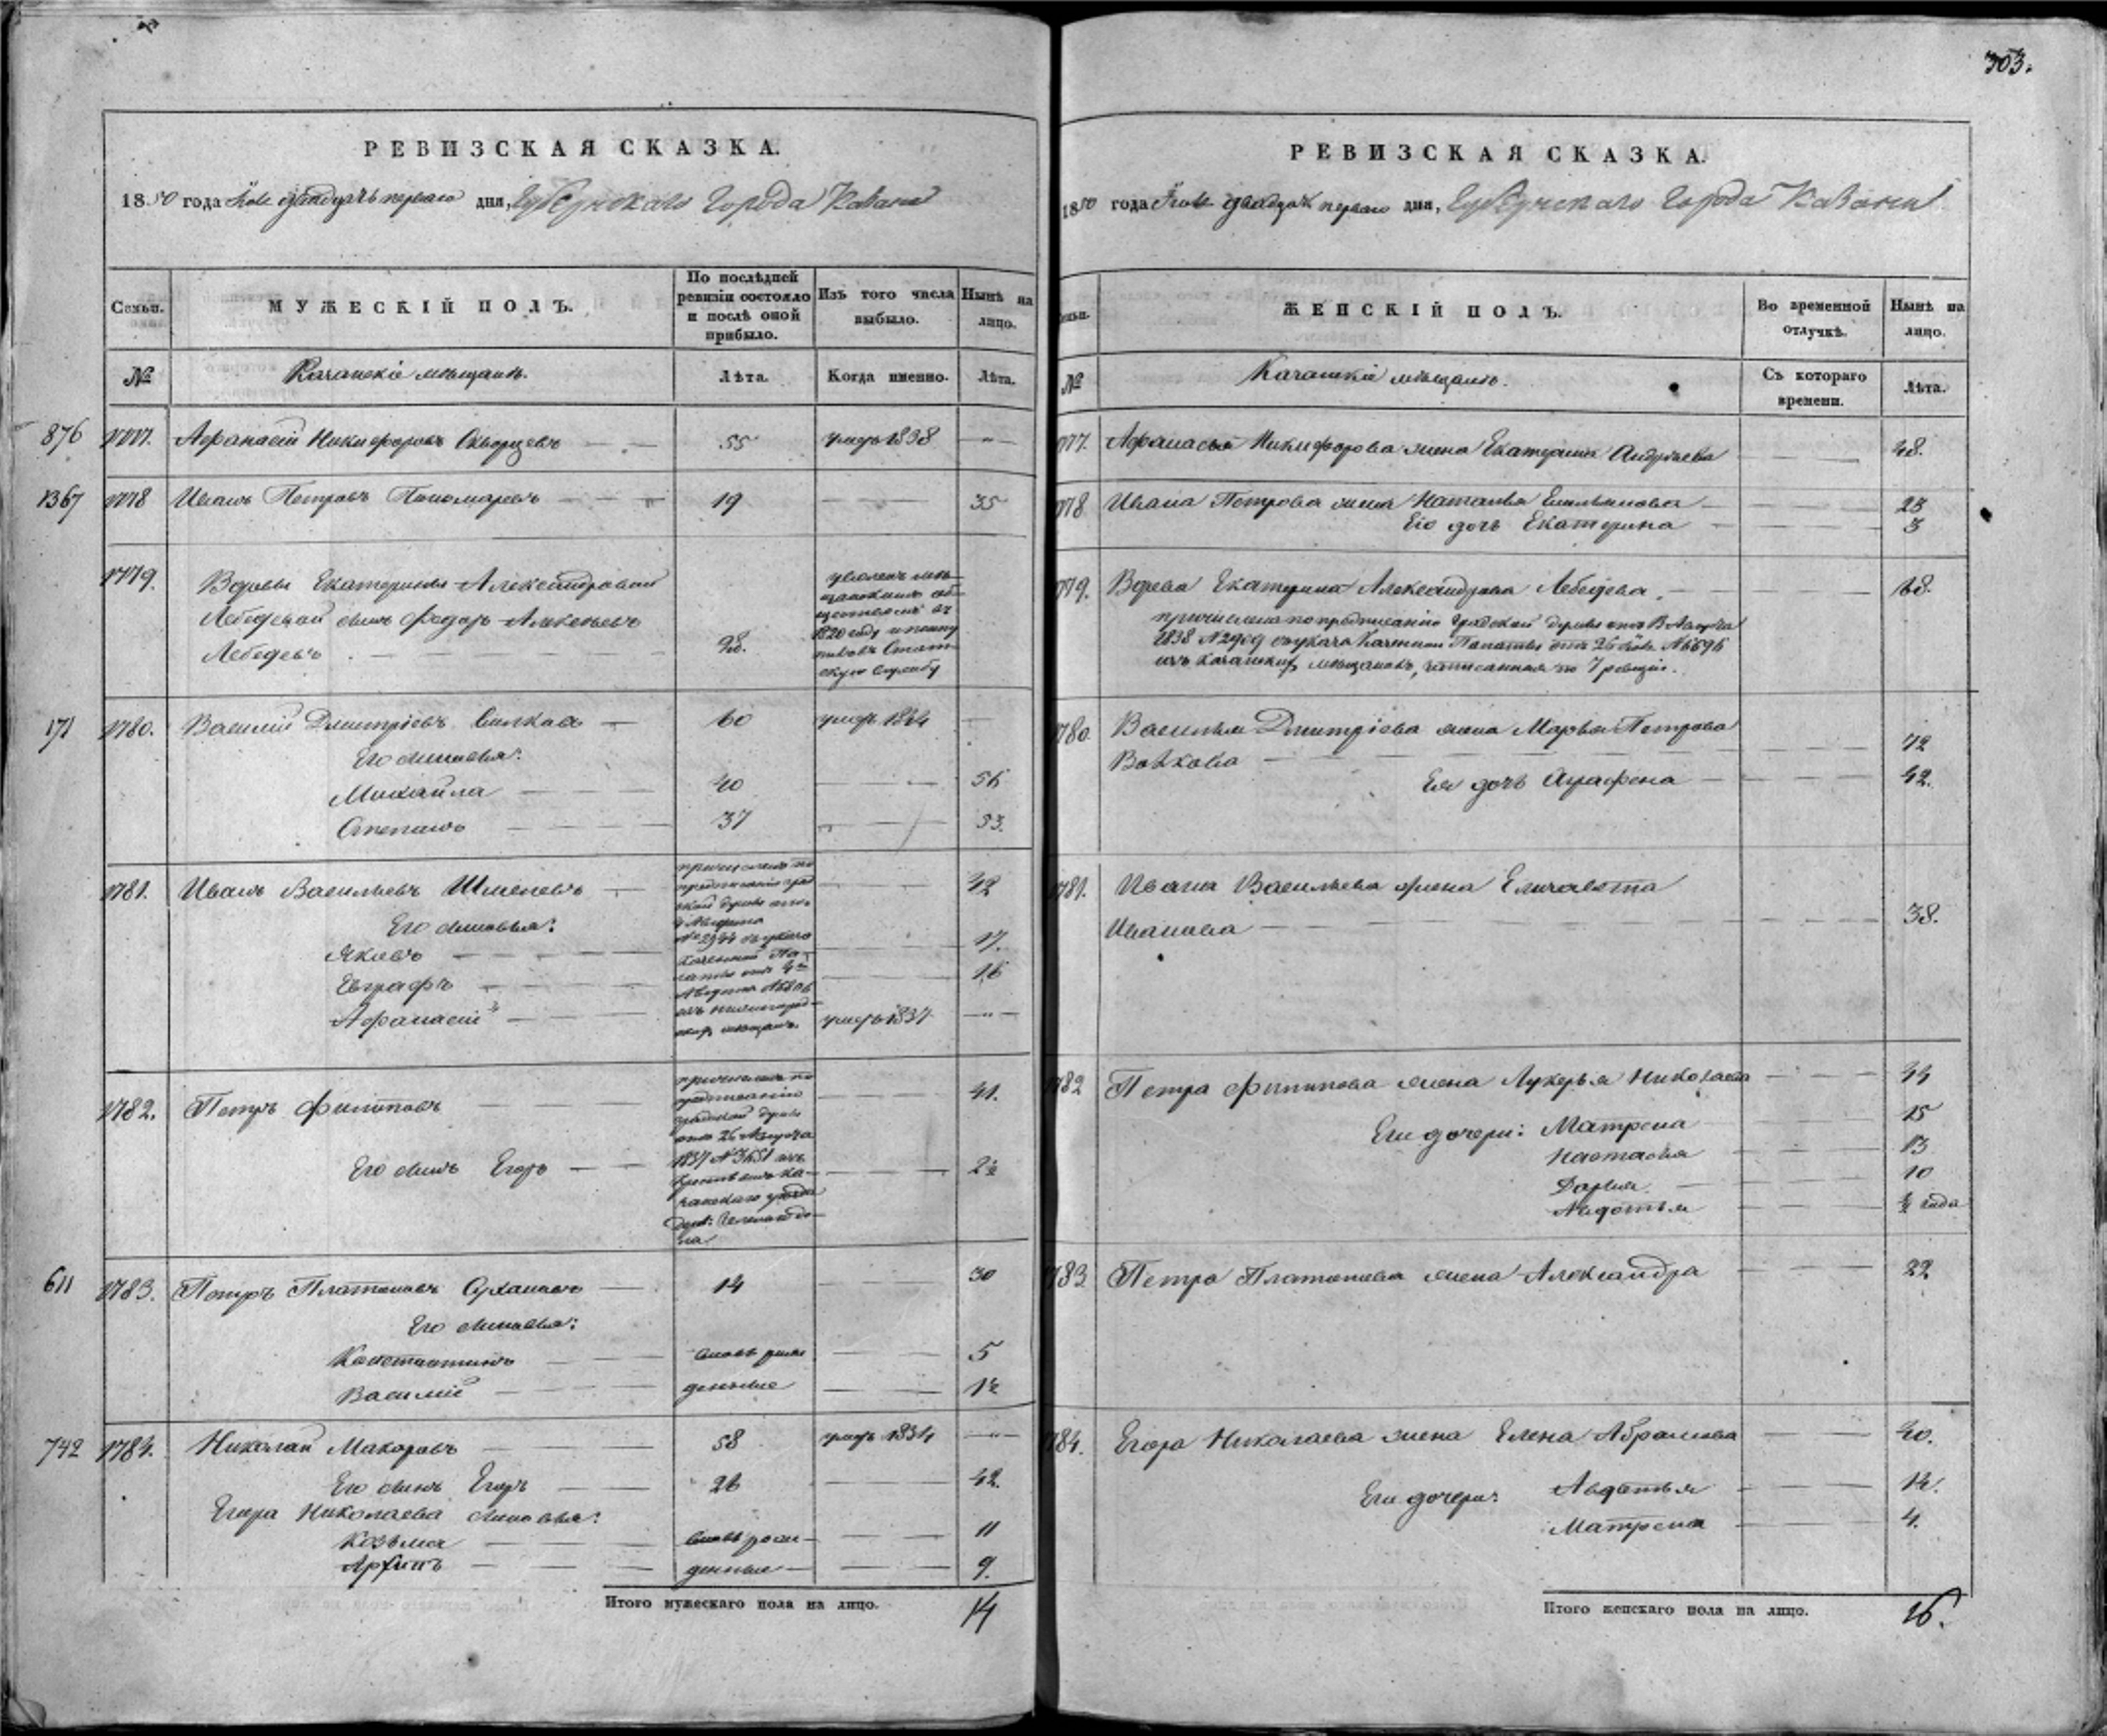 303.
РЕВИЗСКАЯ СКАЗКА.
1850 года Июля двадцать перваго дня, Губернскаго Города Казани
Семьи. МУЖЕСКІЙ ПОЛЪ. По послѣдней ревизіи состояло и послѣ оной прибыло. Изъ того числа выбыло. Нынѣ на лицо.
№ Казанскіе мѣщане. Лѣта. Когда именно. Лѣта.
876 1777. Афанасій Никифоровъ Скворцовъ 55 умеръ 1838
1367 1778 Иванъ Петровъ Пономаревъ 19 35
1779. Вдовы Екатерины Александровой
Лебедевой сынъ Федоръ Алексѣевъ
Лебедевъ 28.
уволенъ мѣ-
щанскимъ об-
ществомъ въ
1820 году
скую службу
171 1780. Василій Дмитріевъ 60 умеръ
Его сыновья:
Михайла 40 56
Степанъ 37 53.
1781. Иванъ Васильевъ Шмелевъ 42
Его сыновья:
Яковъ 17.
Евграфъ 16
Афанасій умеръ 1837
причисленъ по
предписанію град
ской думы отъ
Августа
№ 2944
казенной Па-
латы отъ
Августа
мѣщанъ.
1782. Петръ Филиповъ 41.
Его сынъ Егоръ 2½
причисленъ по
предписанію
градской думы
отъ 26 Августа
1837 № 3651 изъ
занскаго уѣзда
611 1783. Петръ Платоновъ Сухановъ 14 30
Его сыновья:
Константинъ вновь рож 5
Василій денные 1½
742 1784. Николай Макаровъ 58 умеръ 1834
Его сынъ Егоръ 26 42.
Егора Николаева сыновья:
Козьма вновь рож- 11
Архипъ денные 9.
Итого мужескаго пола на лицо. 14
РЕВИЗСКАЯ СКАЗКА.
1850 года Июля двадцать перваго дня, Губернскаго Города Казани
Семьи. ЖЕНСКІЙ ПОЛЪ. Во временной отлучкѣ. Нынѣ на лицо.
№ Казанскіе мѣщане. Съ котораго времени. Лѣта.
777. Афанасья Никифорова жена Екатерина Андреева 48.
778 Ивана Петрова жена Наталья Емельянова 23
Его дочь Екатерина 3
779. Вдова Екатерина Александрова Лебедева. 68.
причислена по предписанію Градской думы отъ Августа
1838 № 2909 Казенной Палаты отъ 26 Июля № 6696
изъ казанскихъ мѣщанокъ, записанная по 7 ревизіи.
780. Василья Дмитріева жена Марья Петрова
72
Ея дочь Аграфена 42.
781. Ивана Васильева жена Елизавета
Иванова 38.
782 Петра Филипова жена Лукерья Николаева 44
Ихъ дочери: Матрена 15
Настасья 13
Дарья 10
Авдотья ½ года
783 Петра Платонова жена Александра 22
784. Егора Николаева жена Елена Абрамова 40.
Ихъ дочери: Авдотья 14.
Матрена 4.
Итого женскаго пола на лицо. 16.